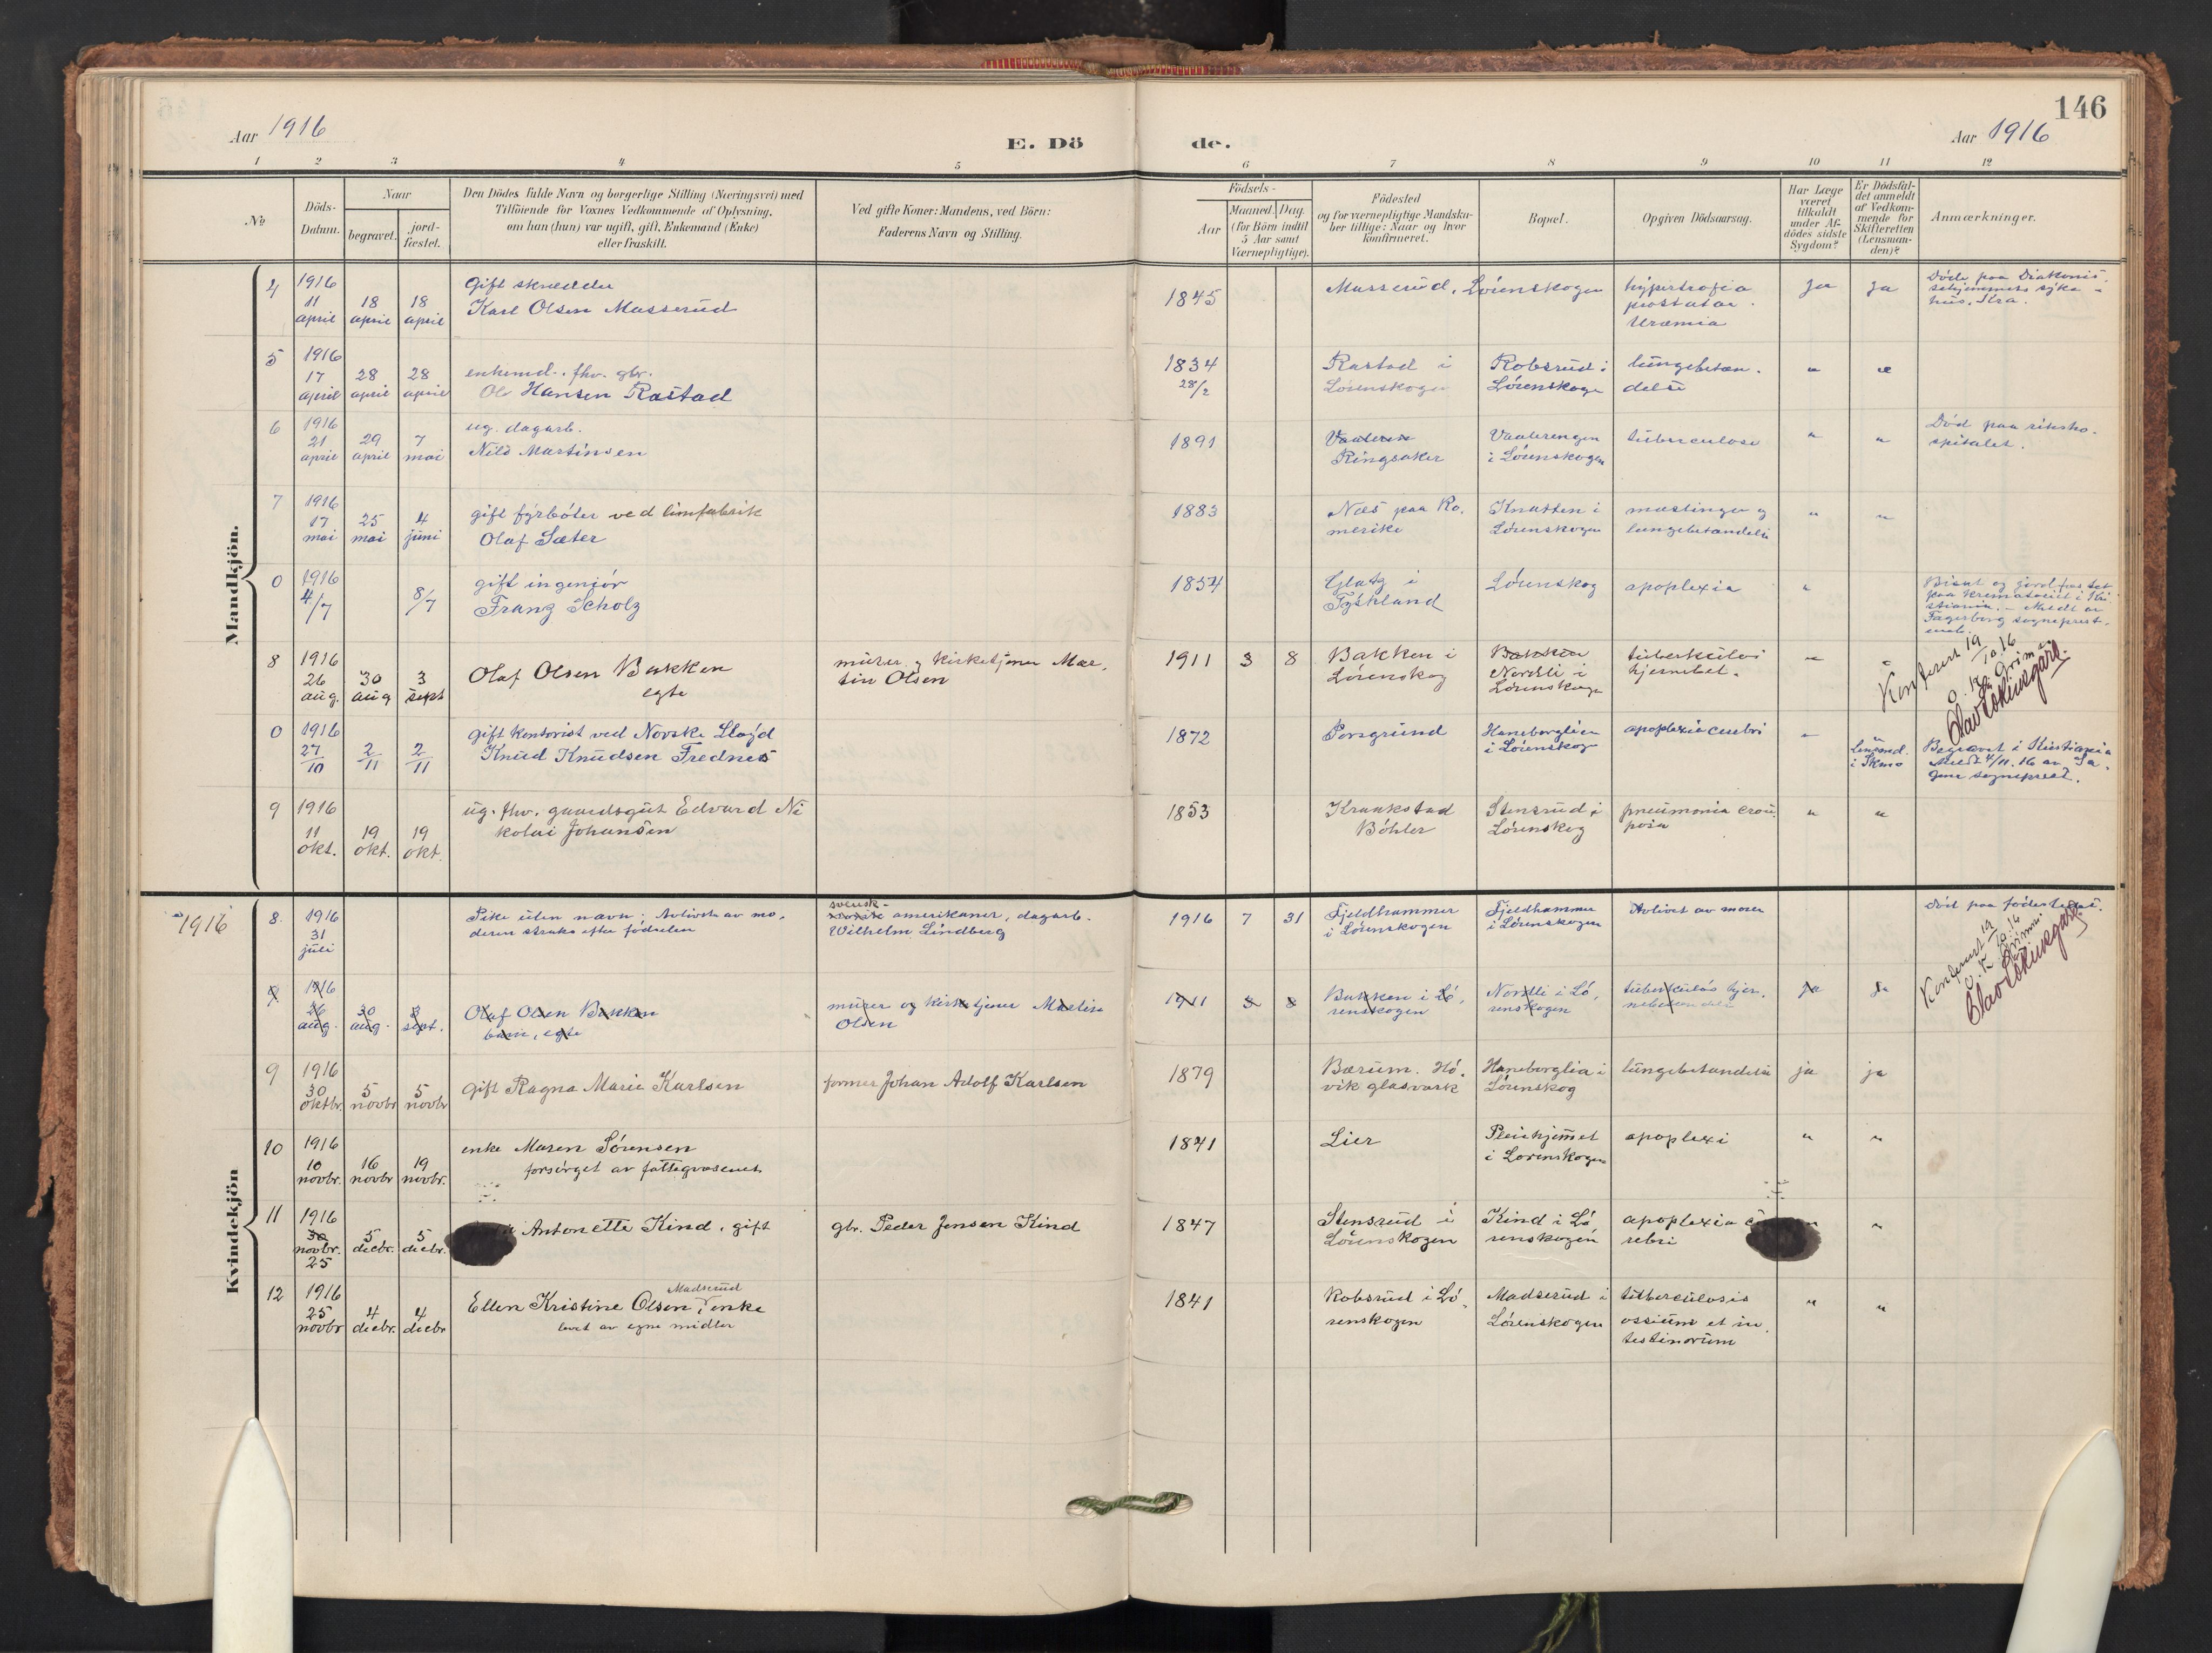 146
Aar 1916
E. Dö de.
Aar 1916
1 2 3 4 5 6 7 8 9 10 11 12
No
Döds-
Datum.
Naar
begravet.
jord-
fæstet.
Den Dödes fulde Navn og borgerlige Stilling (Næringsvei) med
Tilföiende for Voxnes Vedkommende af Oplysning,
om han (hun) var ugift, gift, Enkemand (Enke)
eller fraskilt.
Ved gifte Koner: Mandens, ved Börn:
Faderens Navn og Stilling.
Födsels-
Aar
Maaned. Dag.
(for Börn indtil
5 Aar samt
Værnepligtige).
Födested
og for værnepligtige Mandska-
ber tillige: Naar og hvor
konfirmeret.
Bopæl.
Opgiven Dödsaarsag.
Har Læge
været
tilkaldt
under Af-
dödes sidste
Sygdom?
Er Dödsfal-
det anmeldt
af Vedkom-
mende for
Skifteretten
(Lensman-
den)?
Anmærkninger.
Mandkjön.
4
1916
11
april
18
april
18
april
Gift skrædder
Karl Olsen Masserud
1845
Masserud, Lörenskogen
hypertrofia
prostatae.
Uræmia
Ja
Ja
Döde paa Diakonis-
sehjemmets syke-
hus, Kra.
5
1916
17
april
28
april
28
april
enkemd. fhv. gbr.
Ole Hansen Rastad
1834
28/2
Rastad i
Lörenskogen
Robsrud i
Lörenskogen
lungebetæn-
delse
"
"
6
1916
21
april
29
april
7
mai
ug. dagarb.
Nils Martinsen
1891
Vaaleren
Ringsaker
Vaalerengen
i Lörenskogen
tuberculose
"
"
Död paa riksho-
spitalet.
7
1916
17
mai
25
mai
4
juni
gift fyrböter ved limfabrik
Olaf Sæter
1883
Næs paa Ro-
merike
Knatten i
Lörenskogen
mæslinger og
lungebetændelse
"
"
0
1916
4/7
8/7
gift ingeniör
Franz Scholz
1854
Glatz i
Tyskland
Lörenskog
apoplexia
"
Bisat og jordfæstet
paa krematoriet i Kri
stiania. - Meldt av
Fagerborg sogneprest-
emb.
8
1916
26
aug.
30
aug
3
sept
Olaf Olsen Bakken
egte
murer og kirketjener Mar-
tin Olsen
1911
3
8
Bakken i
Lörenskog
Bakken
Nordli i
Lörenskogen
tuberkulös
hjernebet.
"
"
Konferert 19/10.16
Olav Lökensgard.
0
1916
27
10
2
11
2
11
gift kontorist ved Norske Lloyd
Knud Knudsen Frednes
1872
Porsgrund
Haneborglien
i Lörenskog
apoplexia cerebri
"
"
Lensmd.
i Skmo
Begravet i Kristiania
Meldt 4/11.16 av Sa-
gene sogneprest.
9
1916
11
okt.
19
okt.
19
okt.
ug. fhv. gaardsgut Edvard Ni
kolai Johansen
1853
Kraakstad
Böhler
Stensrud i
Lörenskog
pneumonia crou-
posa
"
"
Kvindekjön
1916
8.
1916
31
juli
Pike uten navn; Avlivet av mo-
deren straks efter födselen
svensk-
norsk amerikaner, dagarb.
Wilhelm Lindberg
1916
7
31
Fjeldhammer
i Lörenskogen
Fjeldhammer
i Lörenskogen
Avlivet av moren
Död paa födestedet.
Konferert 19/10.16
Olav Lökensgard
9
1916
26
aug.
30
aug.
3
sept.
Olaf Olsen Bakken
barn, egte
murer og kirketjener Martin
Olsen
1911
3
8
Bakken i Lö-
renskogen
Nordli i Lö-
renskogen
tuberkulös hjer-
nebetændelse
ja
ja
9
1916
30
oktbr.
5
novbr
5
novbr
gift Ragna Marie Karlsen
former Johan Adolf Karlsen
1879
Bærum. Hö-
vik glasværk
Haneborglia i
Lörenskog
lungebetændelse
ja
ja
10
1916
10
novbr.
16
novbr
19
novbr.
enke Maren Sörensen
forsörget av fattigvæsenet
1841
Lier
Pleiehjemmet
i Lörenskogen
apoplexi
"
"
11
1916
30
novbr.
25
5
decbr.
5
decbr.
Antonette Kind, gift
gbr. Peder Jensen Kind
1847
Stensrud i
Lörenskogen
Kind i Lö-
renskogen
apoplexia ce
rebri
"
12
1916
25
novbr
4
decbr.
4
decbr
Madserud
Ellen Kristine Olsen, enke
levet av egne midler
1841
Robsrud i Lö-
renskogen
Madserud i
Lörenskogen
tuberculosis
ossium et in-
testinorum
"
"